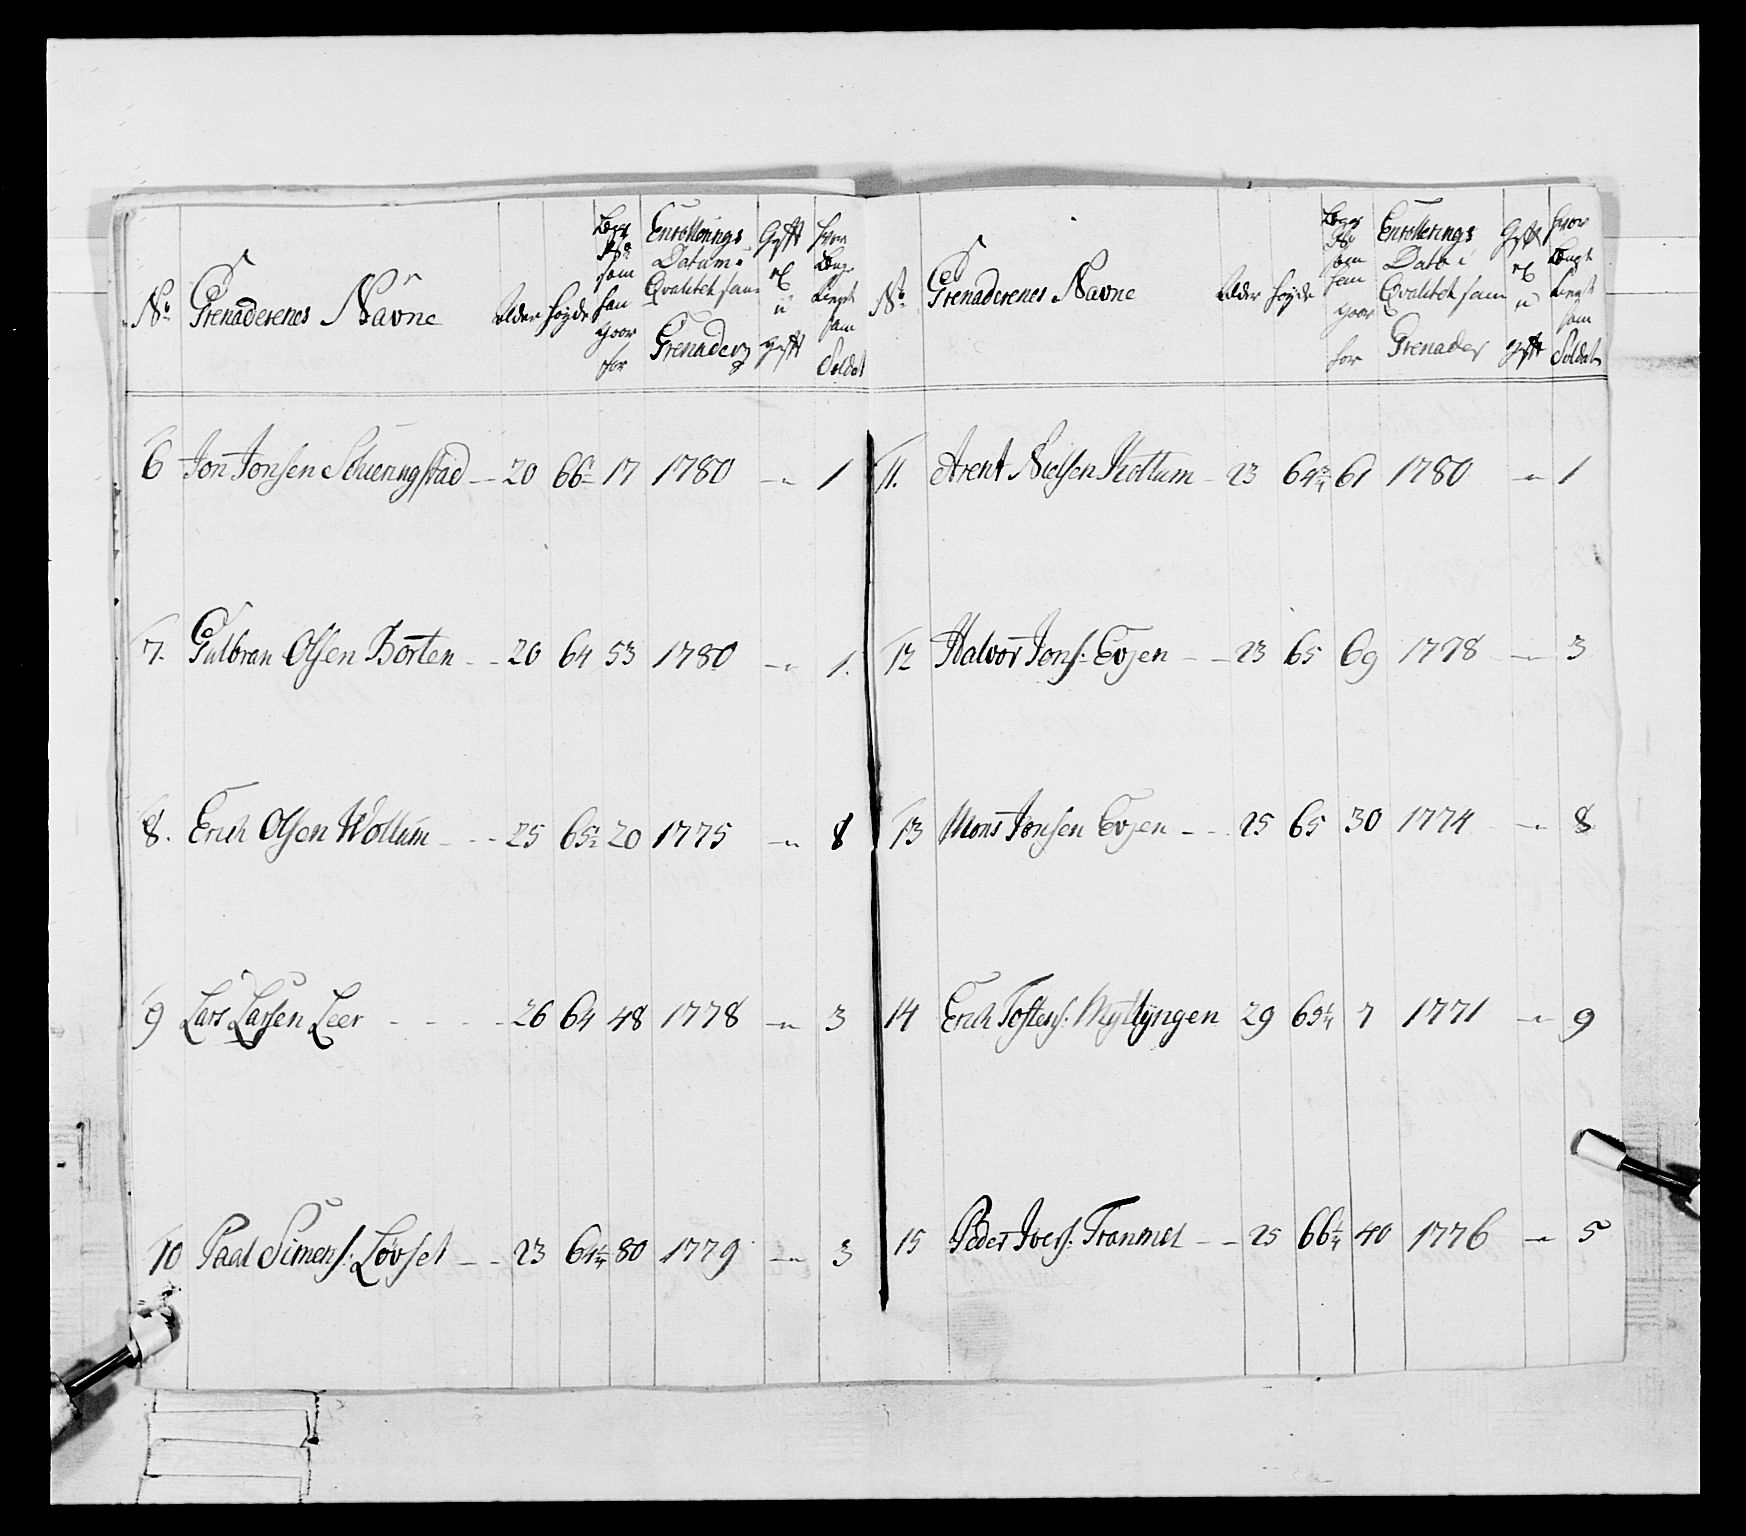 No Grenaderenes Navne Alder Høyde Lægs No som han Goor for Enrollerings Datum i Qvalitet som Grenader Gift el u Gift hvor Længe tient som Soldat
6 Jon Jonsen Schieringstad 20 66 17 1780 1
7. Gulbran Olsen Borten 20 64 53 1780 1.
8. Erich Olsen Wollum 25 65 1/2 20 1775 8
9 Lars Larsen Leer 26 64 48 1778 3
10 Paal Simens: Løvset 23 64 1/4 80 1779 3
No Grenaderenes Navne Alder Høyde Lægs No som han Goor for Enrollerings Dato i Qvalitet som Grenader Gift el u Gift hvor Længe tient som Soldat
11. Arent Nielsen Kottum 23 64 3/4 61 1780 1
12 Halvor Jons: Evjen 23 65 69 1778 3
13 Mons Jonsen Evjen 25 65 30 1774 8
14 Erich Tostens: Myllyngen 29 65 1/4 7 1771 9
15 Peder Ivers: Tranmel 25 66 1/4 40 1776 5